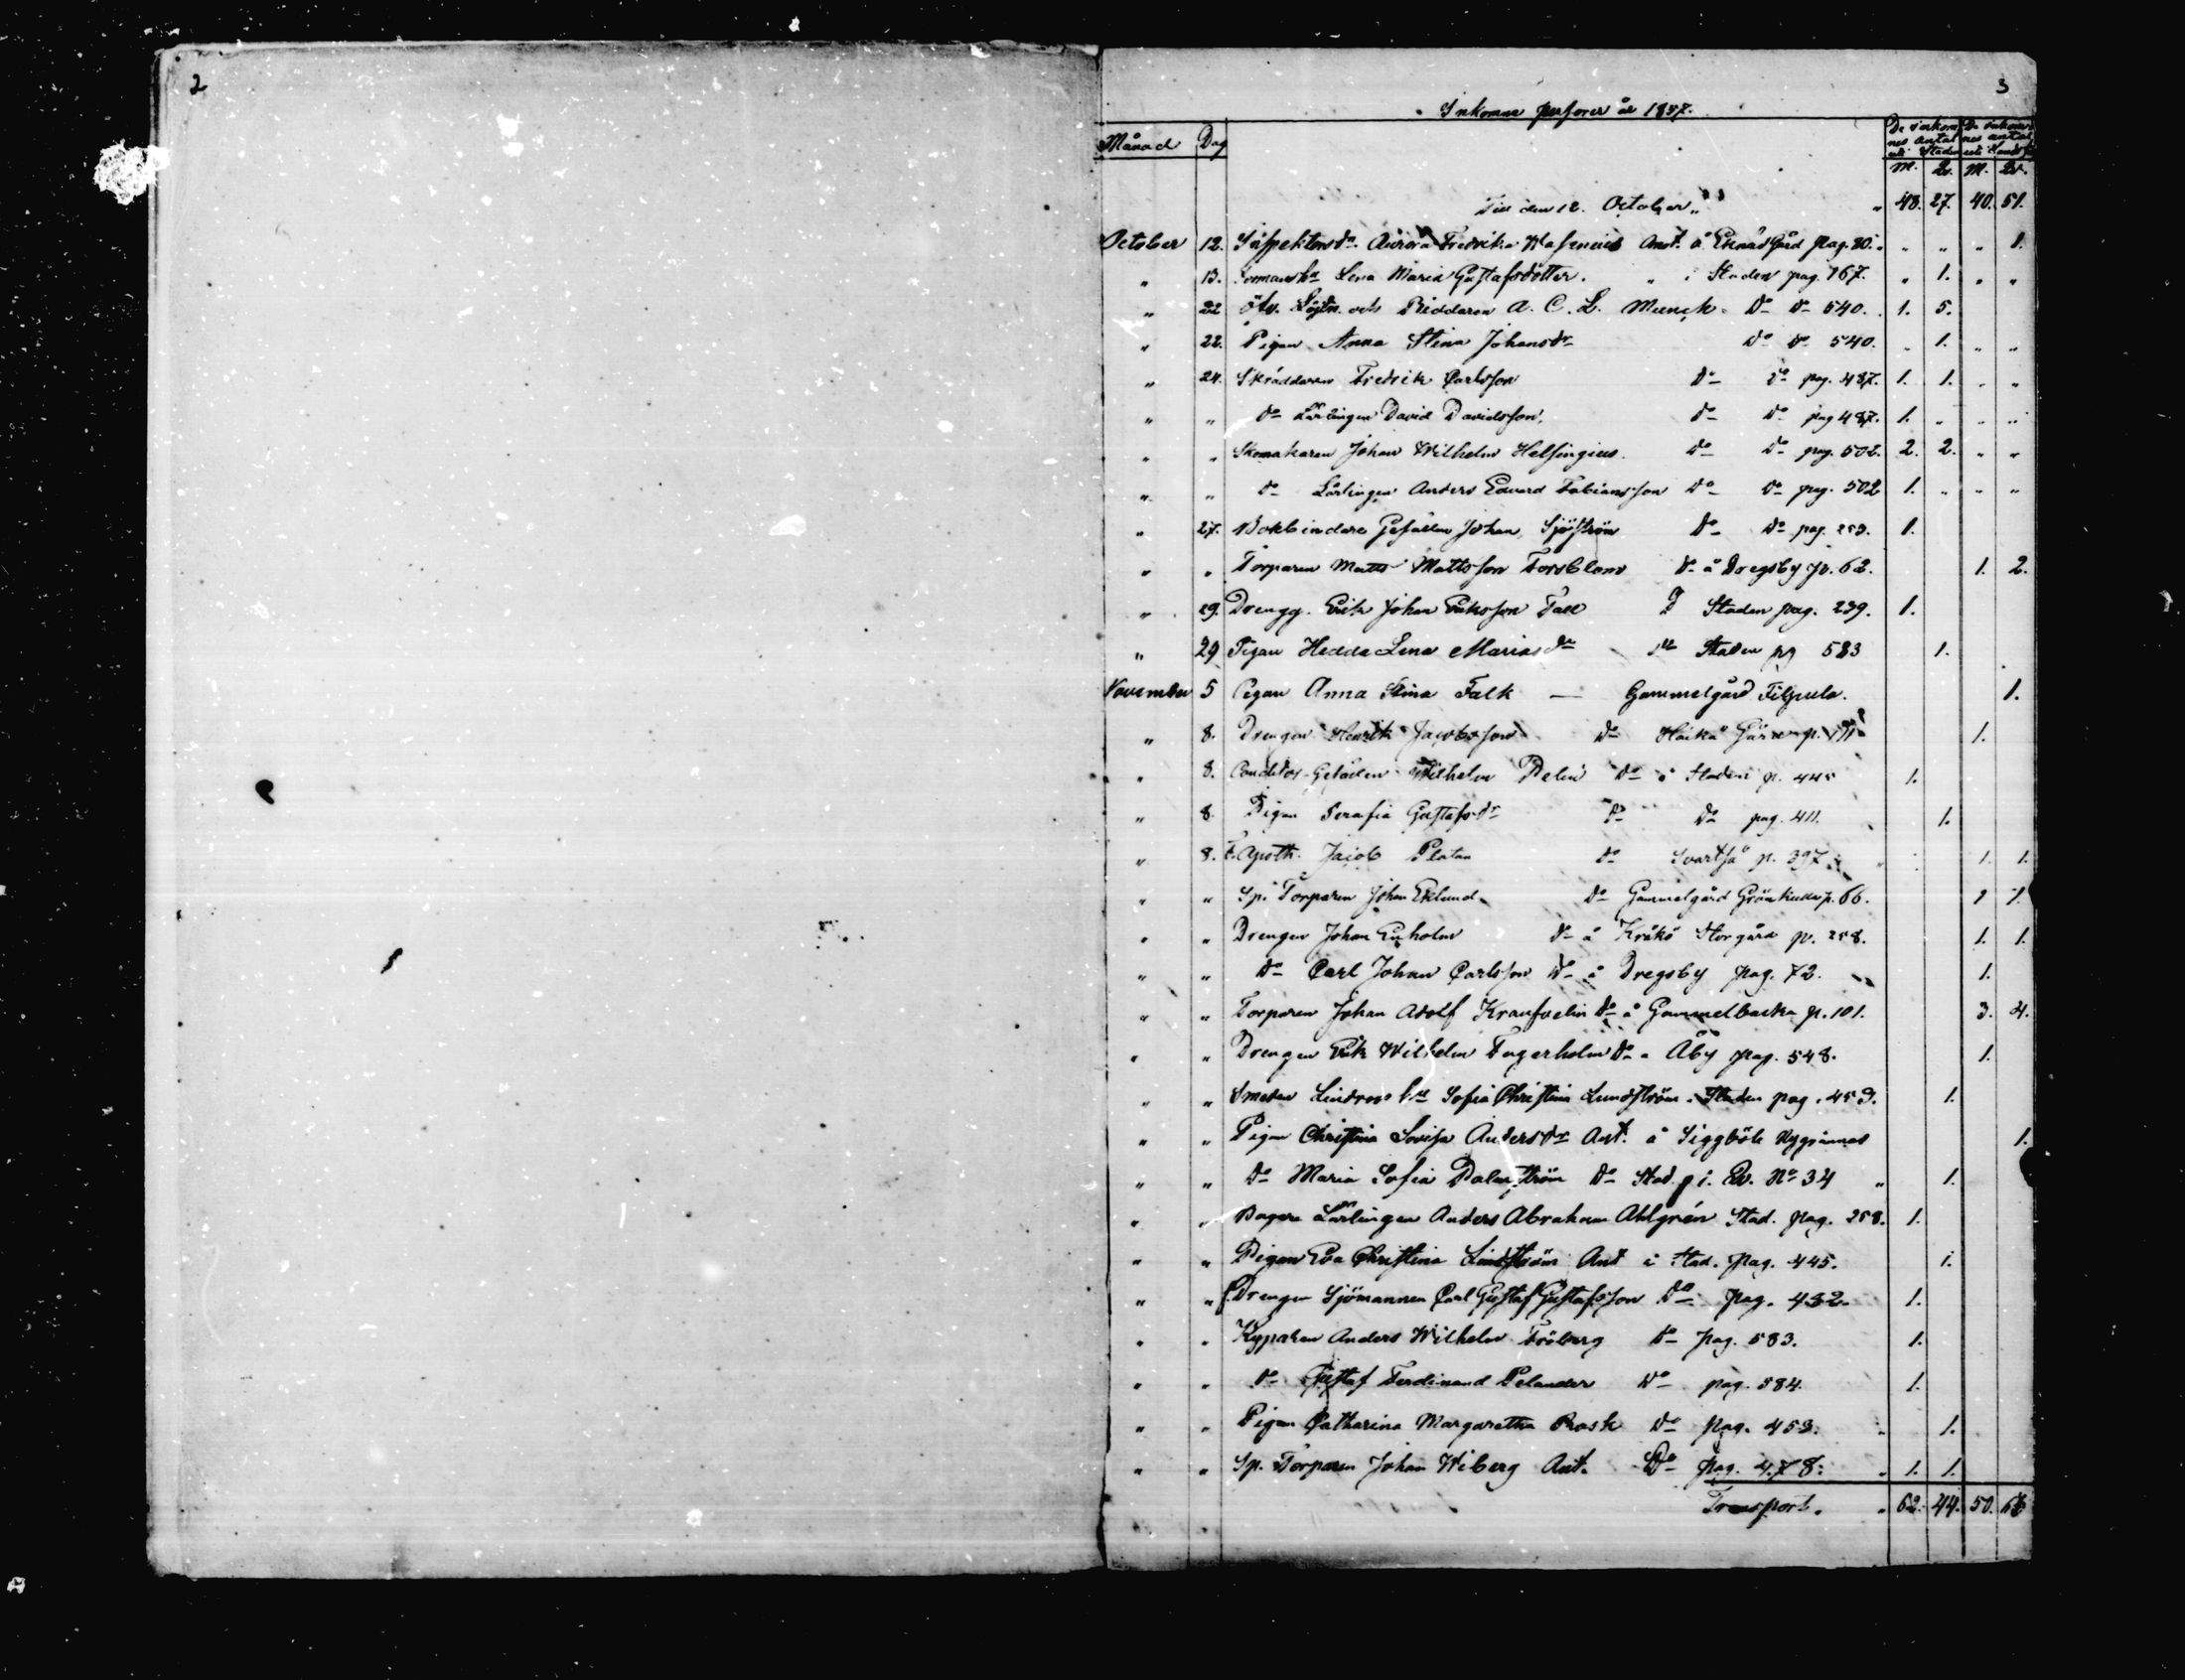 2
3
Inkomne personer år 1857.
Månad Dag De inkomnes antal uti Staden De inkomnes antal uti Landsf
M. Qv. M. Qv.
Till den 12. October „ „ 48. 27. 40. 51.
October 12. Inspektorsdr. Aurora Fredrika Wasenius Ant. å Eknäs Gård pag. 80. „ „ „ „ 1.
„ 13. Lena Maria Gustafsdotter. „ i Staden pag. 167. „ 1. „ „
„ 22 Öfv. Löjtn. och Riddaren A. C. L. Munck Do Do 540. 1. 5.
„ 22. Pigan Anna Stina Johansdr Do Do 540. „ 1. „ „
„ 24. Skräddaren Fredrik Carlsson Do Do pag. 487. 1. 1. „ „
„ „ Do Lärlingen David Davidsson, Do Do pag 487. 1. „ „ „
„ „ Skomakaren Johan Wilhelm Helsingius. Do Do pag. 502. 2. 2. „ „
„ „ Do Lärlingen Anders Edvard Fabiansson Do Do pag. 502 1. „ „ „
„ 27. Bokbindare Gesällen Johan Sjöström Do Do pag. 253. 1.
„ „ Torparen Matts Mattsson Forsblom Do å Dregsby p. 62. 1. 2.
„ 29. Drengg. Erik Johan Eriksson Fall D Staden pag. 239. 1.
„ 29 Pigan Hedda Lena Mariasdr Staden pg 583 1.
November 5 Pigan Anna Stina Falk — Gammelgård Filpula. 1.
„ 8. Drengen Henrik Jacobsson Do Haikå Gård p. 1.
„ 8. Conditor-Gesällen Wilhelm Delin Do i Staden p. 445 1.
„ 8. Pigan Serafia Gustafsdr Do Do pag. 411. 1.
„ 8. F. Apoth. Jacob Platan Do Svartså p. 397. 1. 1.
„ „ Sp. Torparen Johan Eklund Do Gammelgård p. 66. 1 1.
„ „ Drengen Johan Enholm Do å Kråkö Storgård p. 258. 1. 1.
„ „ Do Carl Johan Carlsson Do å Dregsby pag. 72. 1.
„ „ Torparen Johan Adolf Kraufvelin Do å Gammelbacka p. 101. 3. 4.
„ „ Drengen Erik Wilhelm Fagerholm Do å Åby pag. 548. 1.
„ „ Smeden Lindroos hu Sofia Christina Lundström. Staden pag. 459. 1.
„ „ Pigan Christina Lovisa Andersdr Ant. å Siggböle Nygrannas 1.
„ „ Do Maria Sofia Palmström Do Stad. p i. Qv. No 34 „ 1.
„ „ Bagare Lärlingen Anders Abraham Ahlgrén Stad. pag. 258. 1.
„ „ Pigan Eva Christina Lindström Ant i Stad. pag. 445. 1.
„ „ f. Drengen Sjömannen Carl Gustaf Gustafsson Do pag. 432. 1.
„ „ Kyparen Anders Wilhelm Fröberg Do pag. 583. 1.
„ „ Do Gustaf Ferdinand Pelander Do pag. 584. 1.
„ „ Pigan Catharina Margaretha Rask Do pag. 453. „ 1.
„ „ Sp. Torparen Johan Wiberg Ant. Do pag. 478. „ 1. 1.
Transport. „ 62. 44. 50. 66